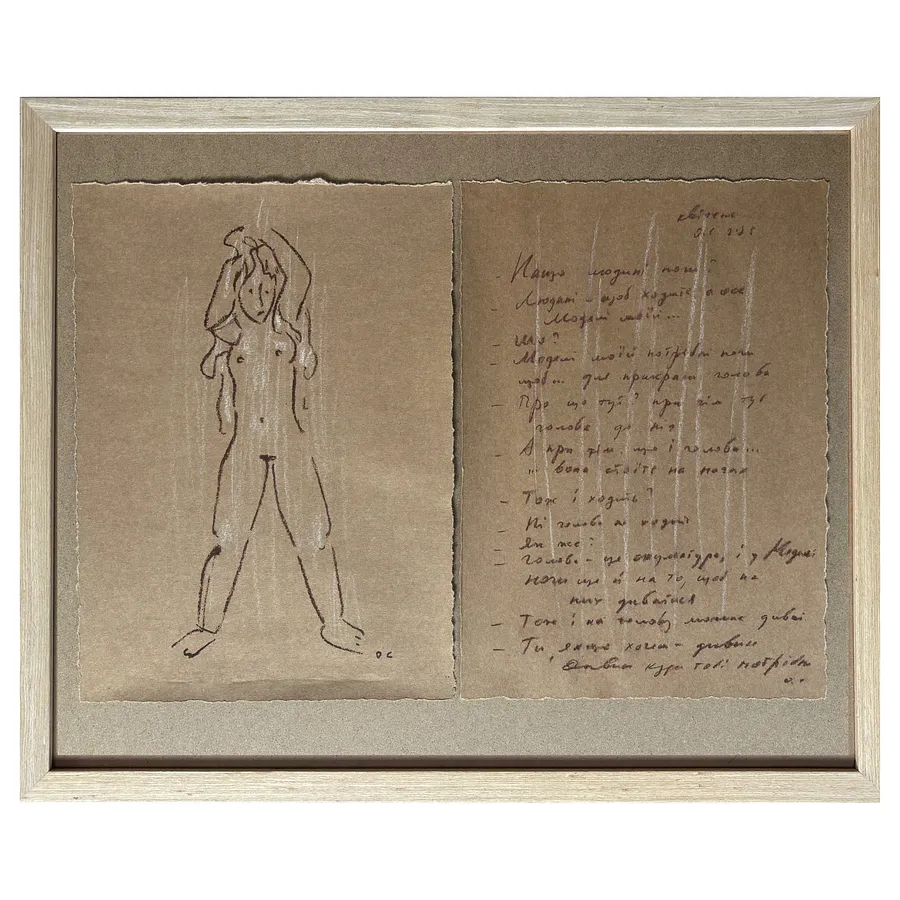 ОС
- Нащо людині ноги?
- Людині - щоб ходить, а ось
Моделі моїй...
- Що?
- Моделі моїй потрібні ноги
щоб... для прикраси голови
- Про що ту? при чім тут
голова до ніг
- А при тім, що і голова...
... вона стоїть на ногах
- Тож і ходить?
- Ні голова не ходить
- Як же?
- Голова - це скульптура, і у Моделі
ноги ще й на то, щоб на
них диватися
- Тож і на голову можна
- Ти, якщо хочеш - дивись
куди тобі потрібно